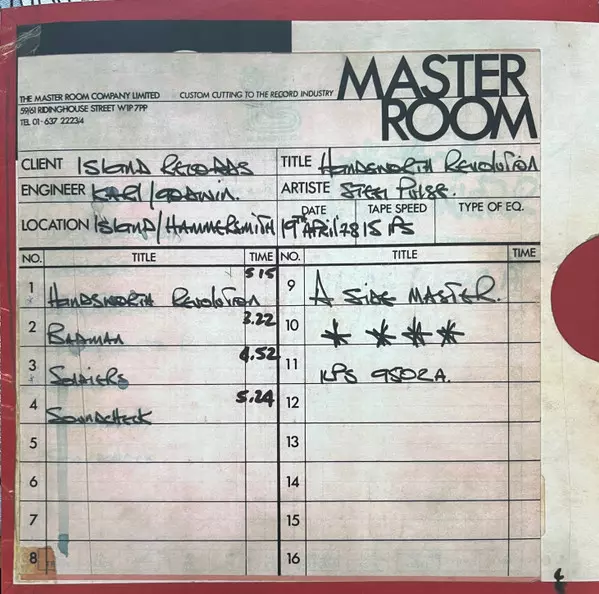 THE MASTER ROOM COMPANY LIMITED CUSTOM CUTTING TO THE RECORD INDUSTRY
59/61 RIDINGHOUSE STREET W1P 7PP
TEL 01-637 2223/4
MASTER
ROOM
CLIENT ISLAND RECORDS TITLE HANDSWORTH REVOLUTION
ENGINEER KARL/GODWIN. ARTISTE STEEL PULSE.
LOCATION ISLAND/HAMMERSMITH DATE 19TH APRIL 78 TAPE SPEED 15 IPS TYPE OF EQ.
NO. TITLE TIME NO. TITLE TIME
1 HANDSWORTH REVOLUTION 5 15 9 A SIDE MASTER.
2 BADMAN 3.22 10 * * * *
3 SOLDIERS 4.52 11 ILPS 9502A.
4 SOUNDCHECK 5.24 12
5 13
6 14
7 15
8 16